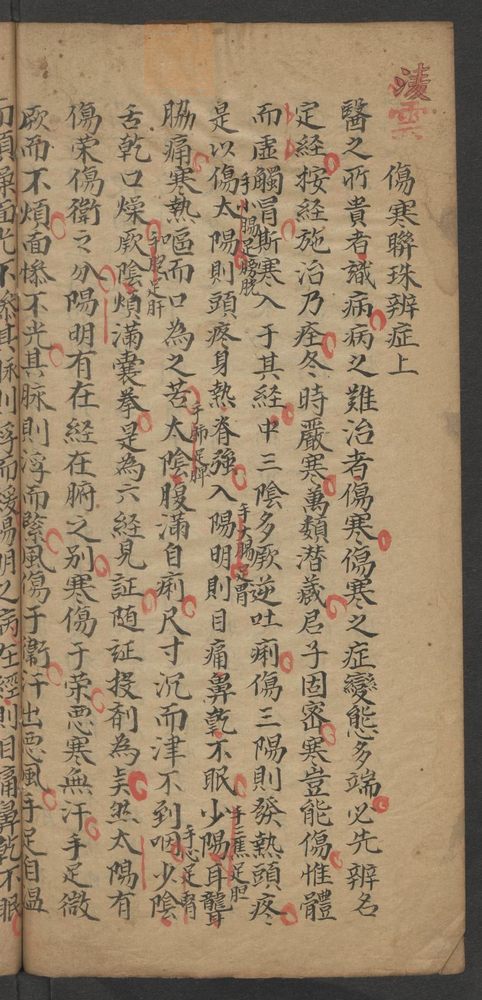 凌雲
傷寒聯珠辨症上
醫之所貴者識病病之難治者傷寒傷寒之症變態多端必先辨名
定経按経施治乃痊冬時嚴寒萬類潜藏君子固宻寒豈能傷惟體
而虛觸冐斯寒入于其経中三陰多厥逆吐痢傷三陽則發熱頭疼
是以傷太陽手小膓足膀胱則頭疼身熱脊強入陽明手大腸足胃則目痛鼻乾不眠少陽手三焦足胆耳聾
脇痛寒熱嘔而口為之苦太陰手肺足脾腹滿自痢尺寸沉而津不到咽少陰手心足腎
舌乾口燥厥陰手胞足肝煩滿囊拳是為六経見証随証投剤為奌然太陽有
傷荣傷衛之分陽明有在経在腑之别寒傷于荣恶寒無汗手足微
厥而不煩面惨不光其脉則浮而緊風傷于衛汗出恶風手足自温
而煩燥面光不惨其脉則浮而緩陽明之病在經則目痛鼻乾不眠